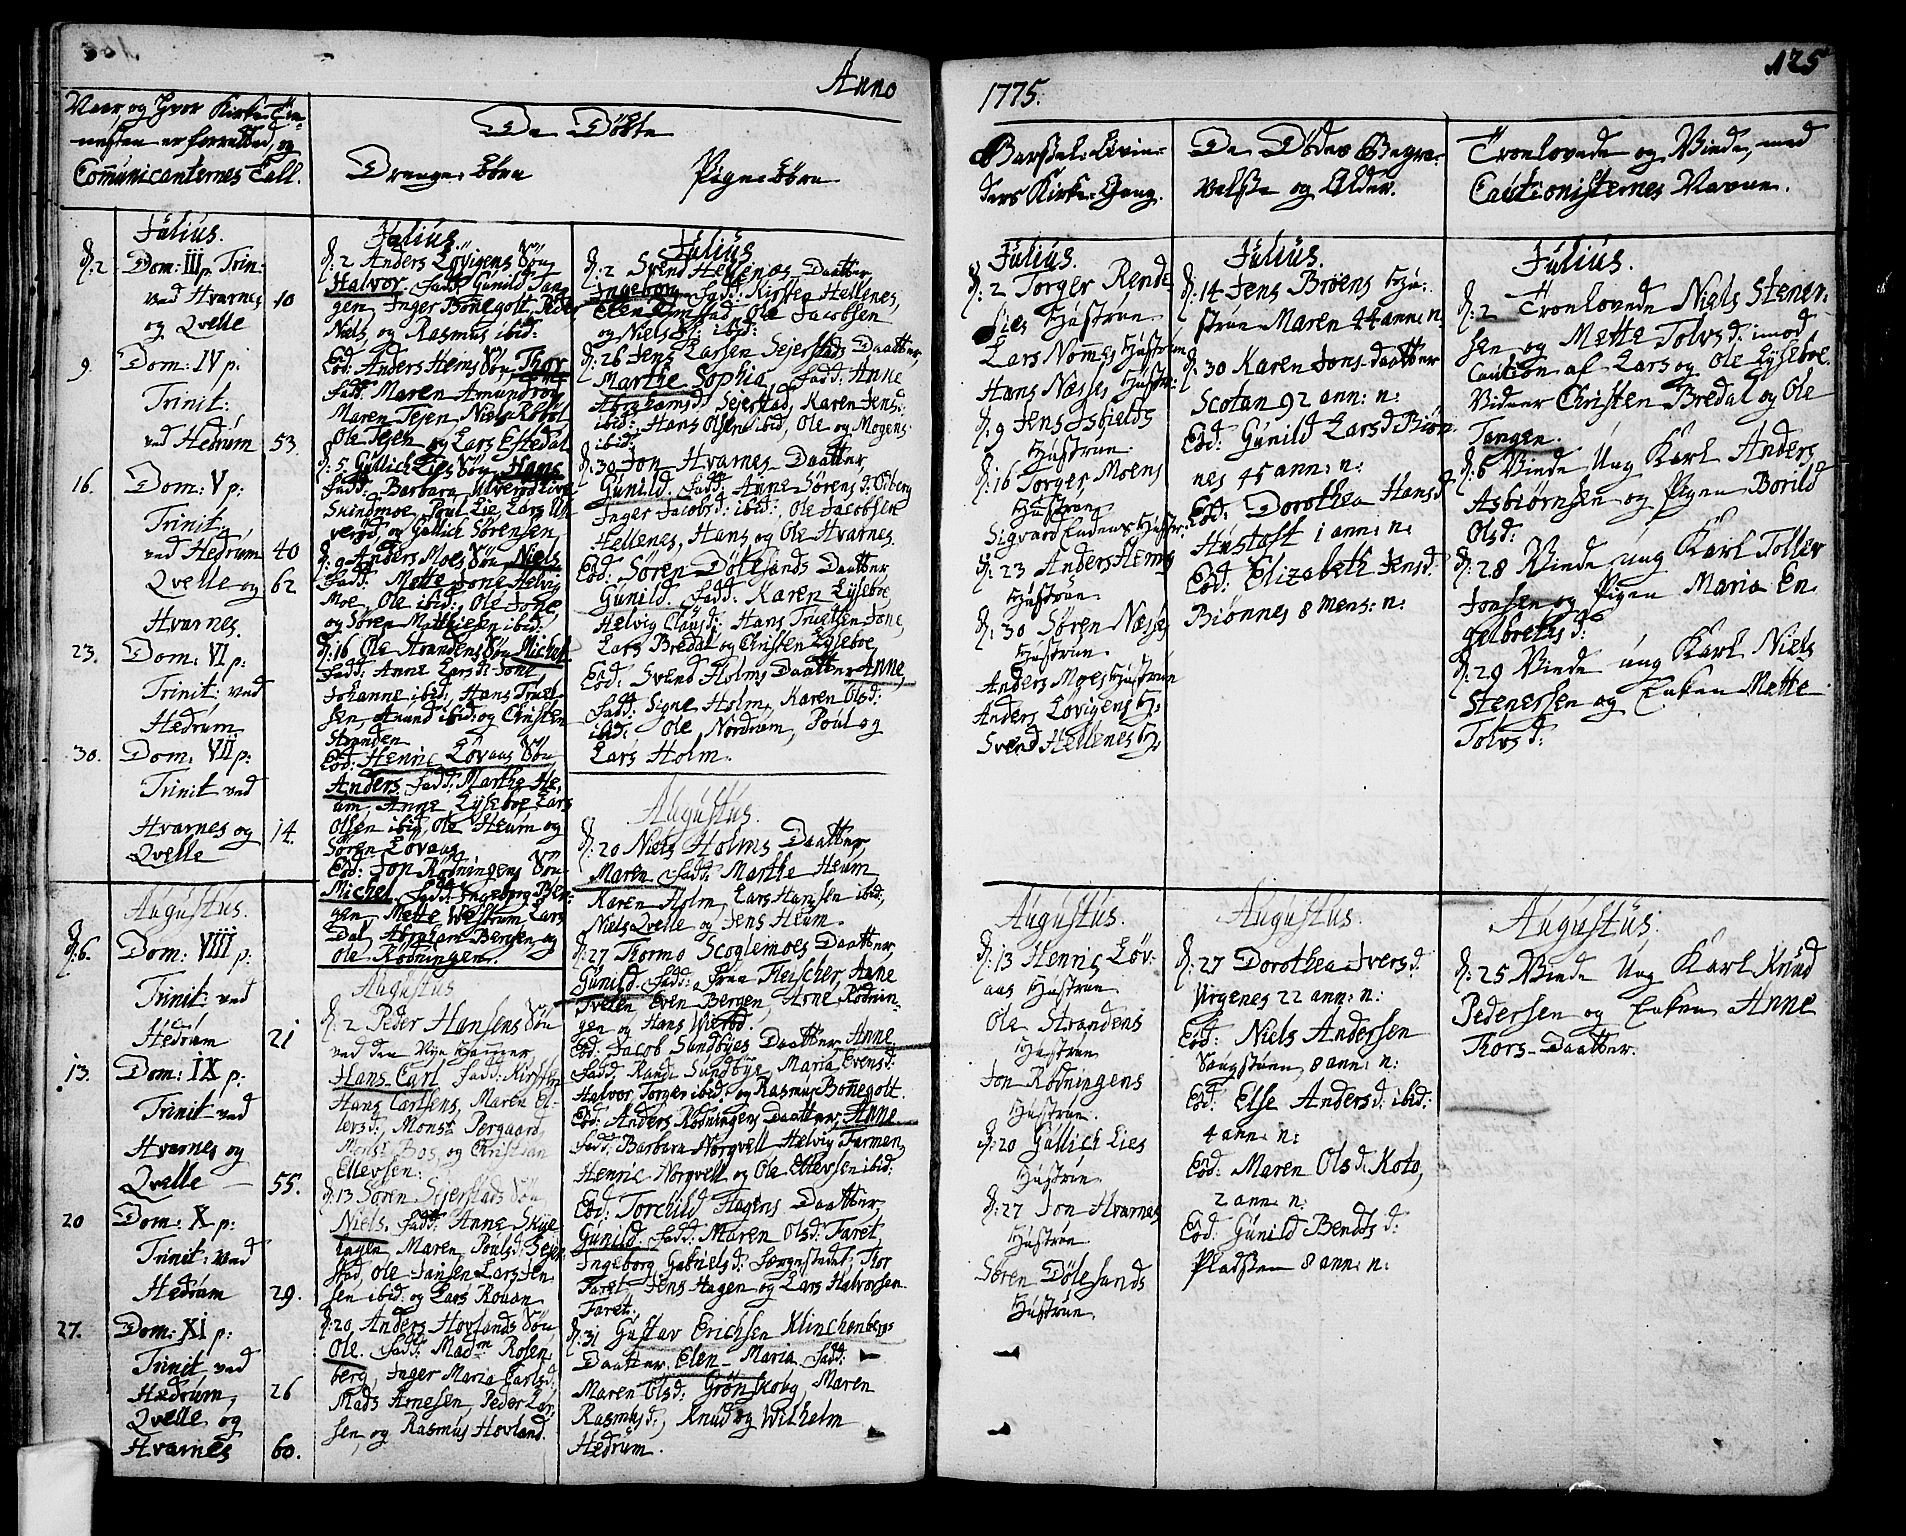 Anno
1775.
125
Naar og Hvor Kirke Tie-
nesten er forretted, og
Comunicanternes Tall.
De Döbte
Drenge Börn
Pigebörn
Barsel-Qvin-
ders Kirke-Gang.
De Dödes Begra-
velse og Alder.
Troelovede og Viede, med
Cautionisternes Navne.
Julius.
d: 2 Dom: III p. Trin:
ved Hvarnes 10
og Qvelle
9. Dom: IV p:
Trinit:
ved Hedrum 53.
16. Dom: V p:
Trinit.
ved Hedrum 40
Qvelle og 62
Hvarnes.
23. Dom: VI p:
Trinit: ved
Hedrum
30. Dom: VII p:
Trinit ved
Hvarnes og 14.
Qvelle
Augustus.
d: 6. Dom: VIII p:
Trinit: ved
Hedrum 21
13. Dom: IX p:
Trinit ved
Hvarnes og
Qvelle 55.
20 Dom: X p:
Trinit: ved
Hedrum 29.
27. Dom: XI p:
Trinit ved
Hedrum, 26
Qvelle og
Hvarnes 60.
Julius.
d: 2 Anders Lövigens Sön
Halvor. Fadd: Gunild Tan-
gen, Inger Bönegolt, Peder
Niels, og Rasmus ibid:
Eod: Anders Hems Sön, Thor
Fadd: Maren Amundrög
Maren Tejen, Niels
Ole Tejen og Lars Eftedal
d: 5 Gullich Lies Sön, Hans
Fadd: Barbara Ulveröd Live
Skindmoe, Poul Lie, Lars Ul-
veröd, og Gullich Sörensen
d: 9 Anders Moes Sön Niels
Fadd: Mette Jone, Helvig
Moe, Ole ibid: Ole Jone,
og Sören Mathiesen ibid:
d: 16 Ole Strandens Sön Michel
Fadd: Anne Larsd: Jone
Johanne ibid, Hans Truel-
sen, Anund ibid: og Christen
Stranden
Eod: Henric Lövaas Sön
Anders. Fadd: Marthe He-
um, Anne Lyseboe Lars
Olsen ibid, Ole Heum og
Sören Lövaas
Eod: Jon Rödningens Sön
Michel. Fadd: Ingeborg Ber-
gen, Mette Westrum, Lars
Dal, Abraham Bergen, og
Ole Rödningen.
Augustus
d: 2 Peder Hansens Sön
ved den Nye Hammer,
Hans Carl Fadd: Kirsten
Hans Carlsens, Maren El-
lersd:, Monsr Pergaard,
Monsr Bos, og Christian
Ellevsen:
d: 13 Sören Sejerstads Sön
Niels. Fadd: Anne Skye
hagen, Maren Poulsd: Sejer
stad, Ole Jansen Lars Jen
sen ibid: og Lars Rouan
d: 20 Anders Hovlands Sön
Ole. Fadd: Madm Rosen
berg, Inger Maria Carlsd:
Mads Arnesen, Peder Lar
sen, og Rasmus Hovland.
Julius
d: 2 Svend Hellenes Daatter,
Ingeborg Fadd: Kirsten Hellenes,
Elen Ole Jacobsen
og Niels ibid:
d: 26 Jens Larsen Sejerstads Daatter,
Marthe Sophia, Fadd: Anne
Abrahamsd: Sejerstad, Karen Jensd:
ibid:, Hans Olsen ibid, Ole og Mogens
ibid:
d: 30 Jon Hvarnes Daatter,
Gunild. Fadd: Anne Sörens d: Öiberg
Inger Jacobsd: ibid:, Ole Jacobsen
Hellenes, Hans og Ole Hvarnes.
Eod: Sören Dölesands Daatter
Gunild. Fadd: Karen Lyseboe
Helvig Clausd: Hans Truelsen Jone,
Lars Bredal og Christen Lyseboe
Eod: Svend Holms Daatter Anne,
Fadd: Signe Holm, Karen Olsd:
ibid: Ole Nordrum, Poul og
Lars Holm.
Augustus.
d: 20 Niels Holms Daatter,
Maren Fadd: Marthe Heum
Karen Holm, Lars Hansen ibid:,
Niels Qvelle og Jens Heum.
d: 27 Thormo Scoglemoes Daatter,
Gunild. Fadd: Frue Fleischer, Anne
Tveten, Even Bergen, Arne Rödnin-
gen og Hans Wieröd.
Eod: Jacob Sundbyes Daatter Anne
Fadd: Randi Sundbye, Maria Evensd:
Halvor, Torger ibid: og Rasmus Bönegolt.
Eod: Anders Rödningens Daatter, Anne
Fadd: Barbara Norqvell Helvig Farmen,
Henric Norqvell og Ole Ellevsen ibid:
Eod: Torchild Hagens Daatter,
Gunild. Fadd: Maren Olsd: Faret,
Ingeborg Gabrielsd: Thor
Faret, Jens Hagen og Lars Halvorsen
Faret.
d: 31 Gustav Erichsen Klinchenbergs
Daatter, Elen-Maria. Fadd:
Maren Olsd: Grönskoby, Maren
Rasmusd:, Knud og Wilhelm
Hedrum.
Julius.
d: 2 Torger Rende
Lies Hustrue
Lars Nomes Hustrue
Hans Næsses Hustr:
d: 9 Jens Isfields
Hustrue
d: 16 Torger Moens
Hustrue
Sigvard Endens Hustr:
d: 23 Anders Hems
Hustrue
d: 30 Sören Næsses
Hustrue
Anders Moes Hustrue
Anders Lövigens H:
Svend Hellenes H:
Augustus.
d: 13 Henric Löv-
aas Hustrue
Ole Strandens
Hustrue
Jon Rödningens
Hustrue
d: 20 Gullich Lies
Hustrue
d: 27 Jon Hvarnes
Hustrue
Sören Dölesands
Hustrue
Julius.
d: 14 Jens Bröens Hu-
strue Maren 44 ann: n:
d: 30 Karen Jons-Daatter
Scotan 92 ann: n:
Eod: Gunild Larsd Biön
nes 45 ann: n:
Eod: Dorothea Hansd
Hustoft 1 ann: n:
Eod: Elizabeth Jensd:
Biönnes 8 Mens: n:
Augustus.
d: 27 Dorothea Ivers d:
Virgenes 22 ann: n:
Eod: Niels Andersen
8 ann: n:
Eod: Else Andersd: ibid:
4 ann: n:
Eod: Maren Olsd: Koto,
2 ann: n:
Eod: Gunild Bendts d:
Pladsen 8 ann: n:
Julius.
d: 2 Troelovede Niels Stener-
sen og Mette Tolvsd: imod
Caution af Lars og Ole Lyseboe
Vidner Christen Bredal og Ole
Tangen.
d: 6 Viede Ung Karl Anders
Asbiörnsen og Pigen Borild
Olsd:
d: 28 Viede ung Karl Tollev
Jonsen og Pigen Maria En
gelbretsd:
d: 29 Viede ung Karl Niels
Stenersen og Enken Mette
Tolvsd:
Augustus:
d: 25 Viede Ung Karl Knud
Pedersen og Enken Anne
Thors-Daatter.